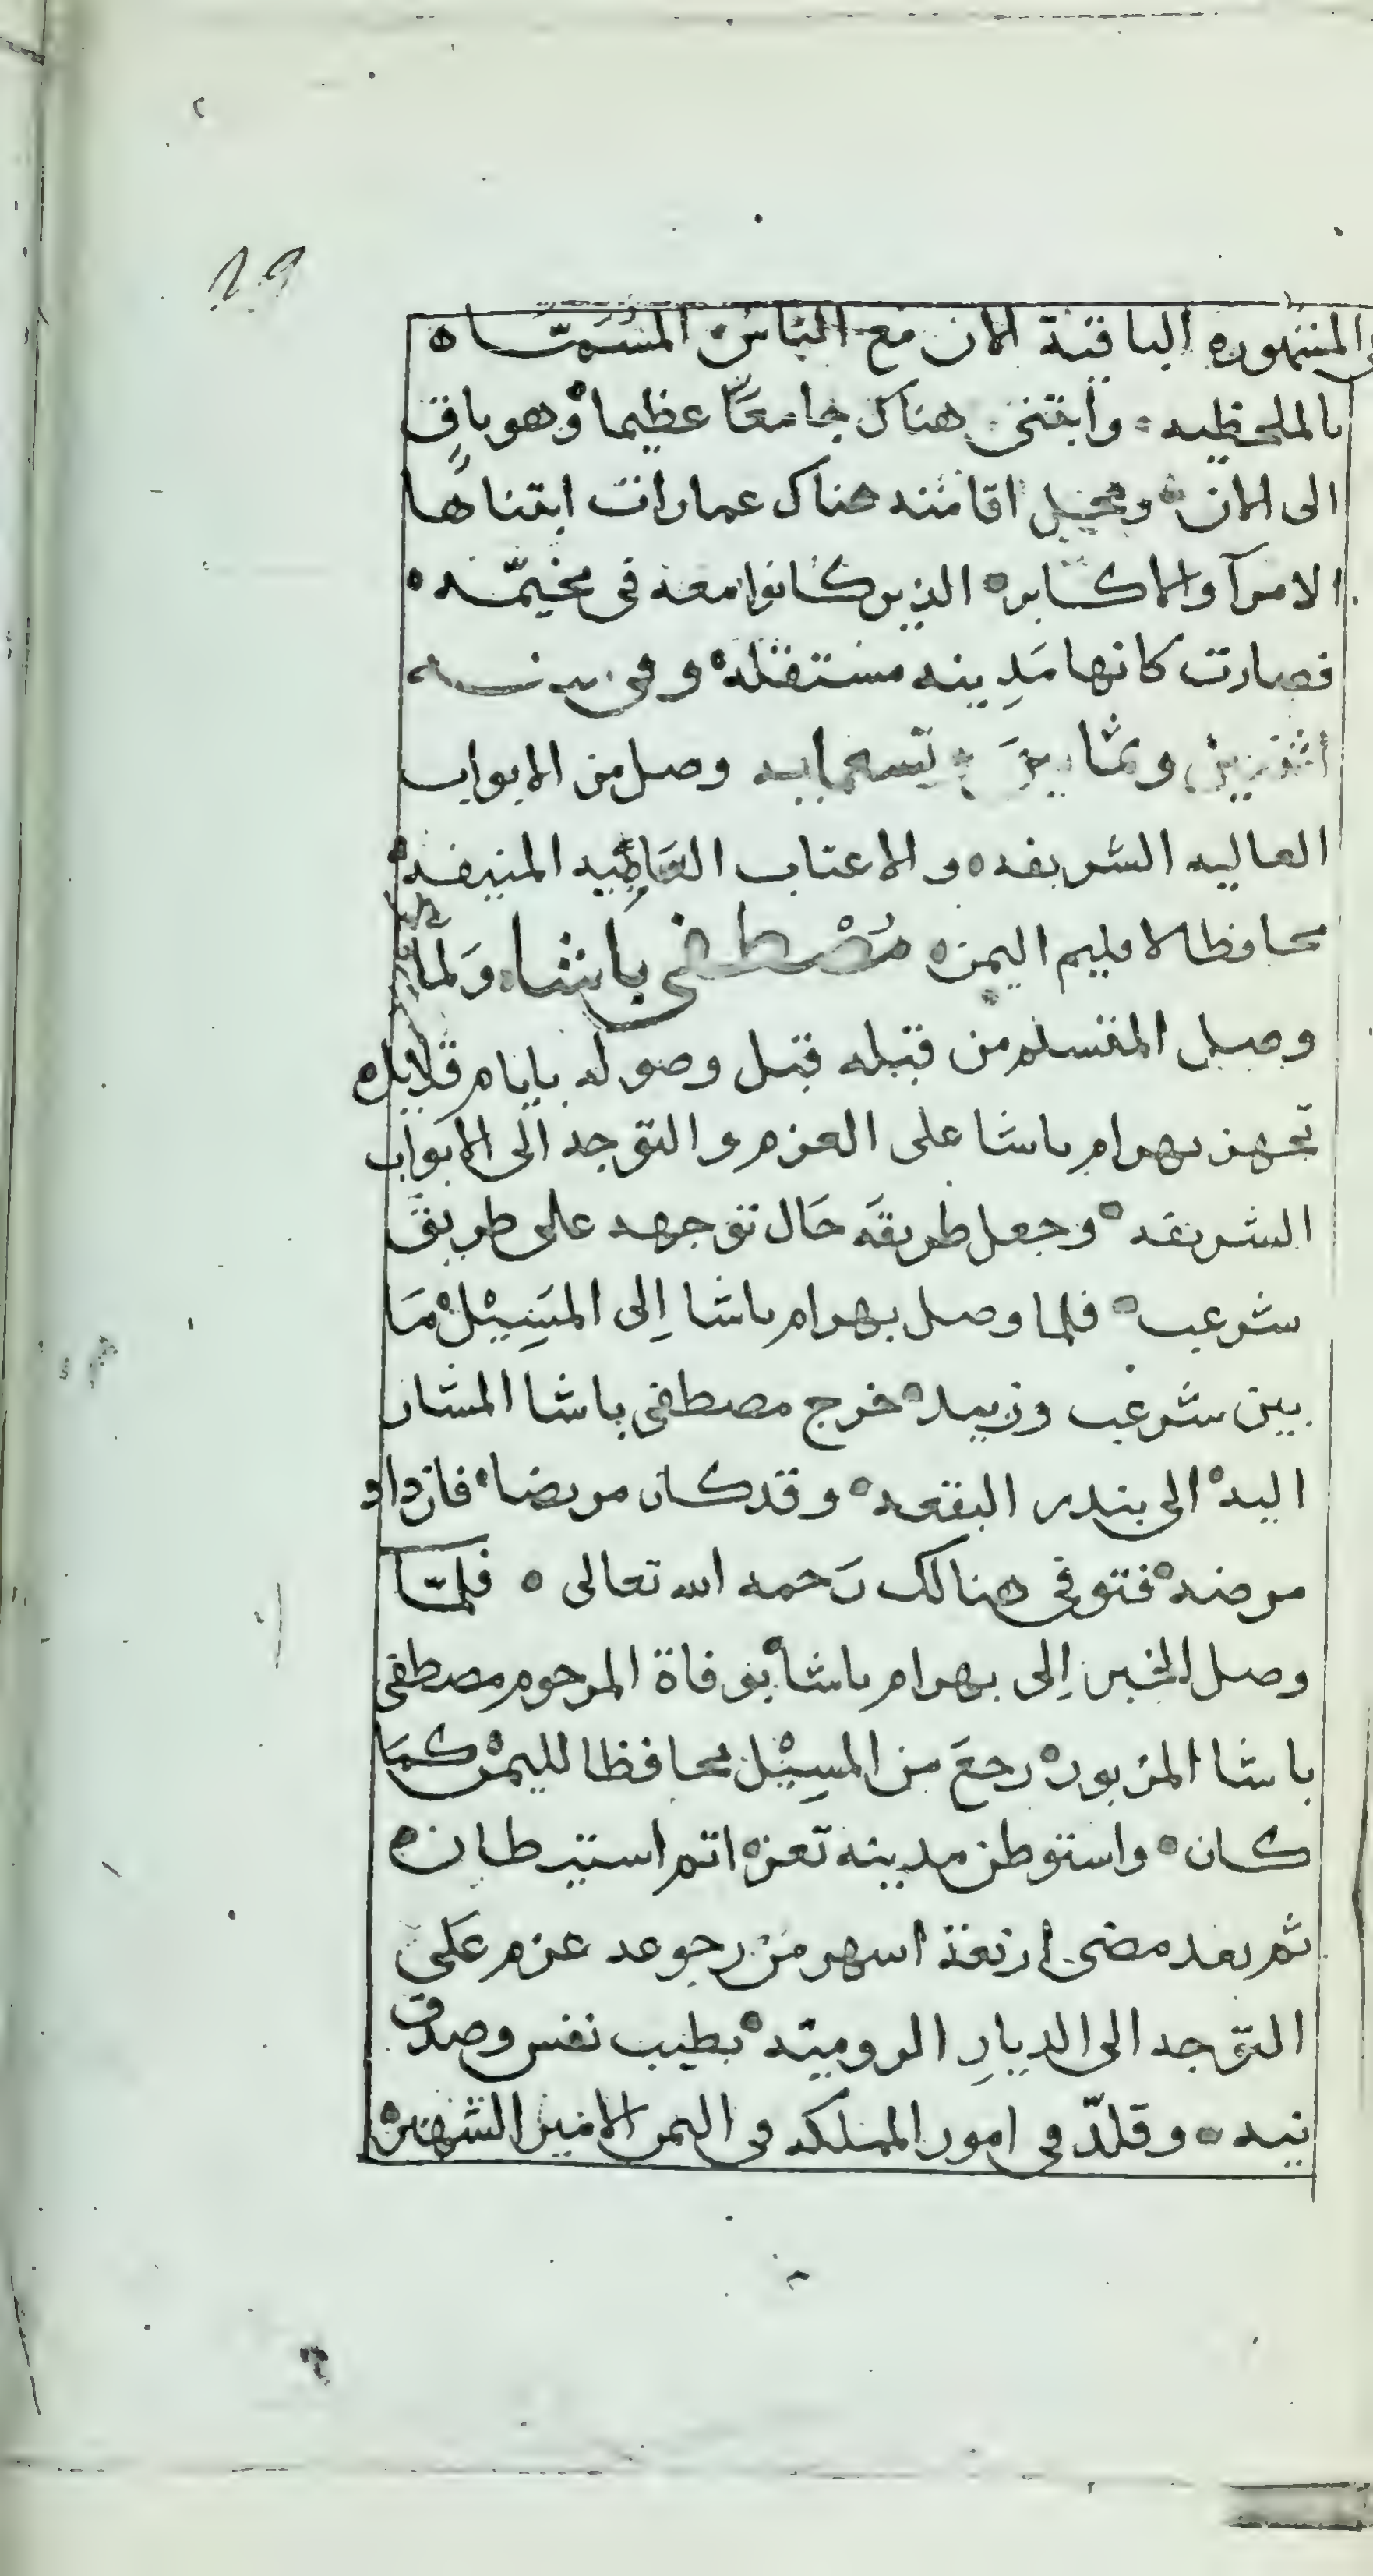 29
المشهوره الباقية الان مع الناس المسماه
بالملحظيه وابتنى هناك جامعًا عظيما وهو باقٍ
الى الان وبمحل اقامته هناك عمارات ابتناها
الامرآ والاكابر الذين كانوا معه فى مخيّمه
فصارت كانها مَدِينه مستقله وفى سنه
اثنين وثمانينَ وتسعمايه وصل من الابواب
العاليه الشريفه والاعتاب المنيفه
محافظا لاقليم اليمن مُصْطفى باشا وَلما
وصل المتسلم من قبله قبل وصوله بايام قلايل
تجهز بهرام باشا على العزم والتوجه الى الابواب
الشريفه وجعل طريقَه حَال توجهه على طريق
شرعب فلما وصل بهرام باشا اِلى المسِيْل مَا
بين شرعب وزبيد خرج مصطفى باشا المشار
اليه الى بندر البقعه وقد كان مريضا فازداد
مرضه فتوفى هنالك رَحمه الله تعالى فلمّا
وصل الخبر اِلى بهرام باشا بوفاة المرحوم مصطفى
باشا المزبور رجعَ من المسِيْل محافظا لليمن كمَا
كان واستوطن مدينه تعز اتم استيطان
ثم بعد مضى اربعة اشهر من رجوعه عزم عَلى
التوجه الى الديارِ الروميّه بطيب نفس وصدق
نيه وقلّد فى امور المملكه فى اليمن الامير الشهير